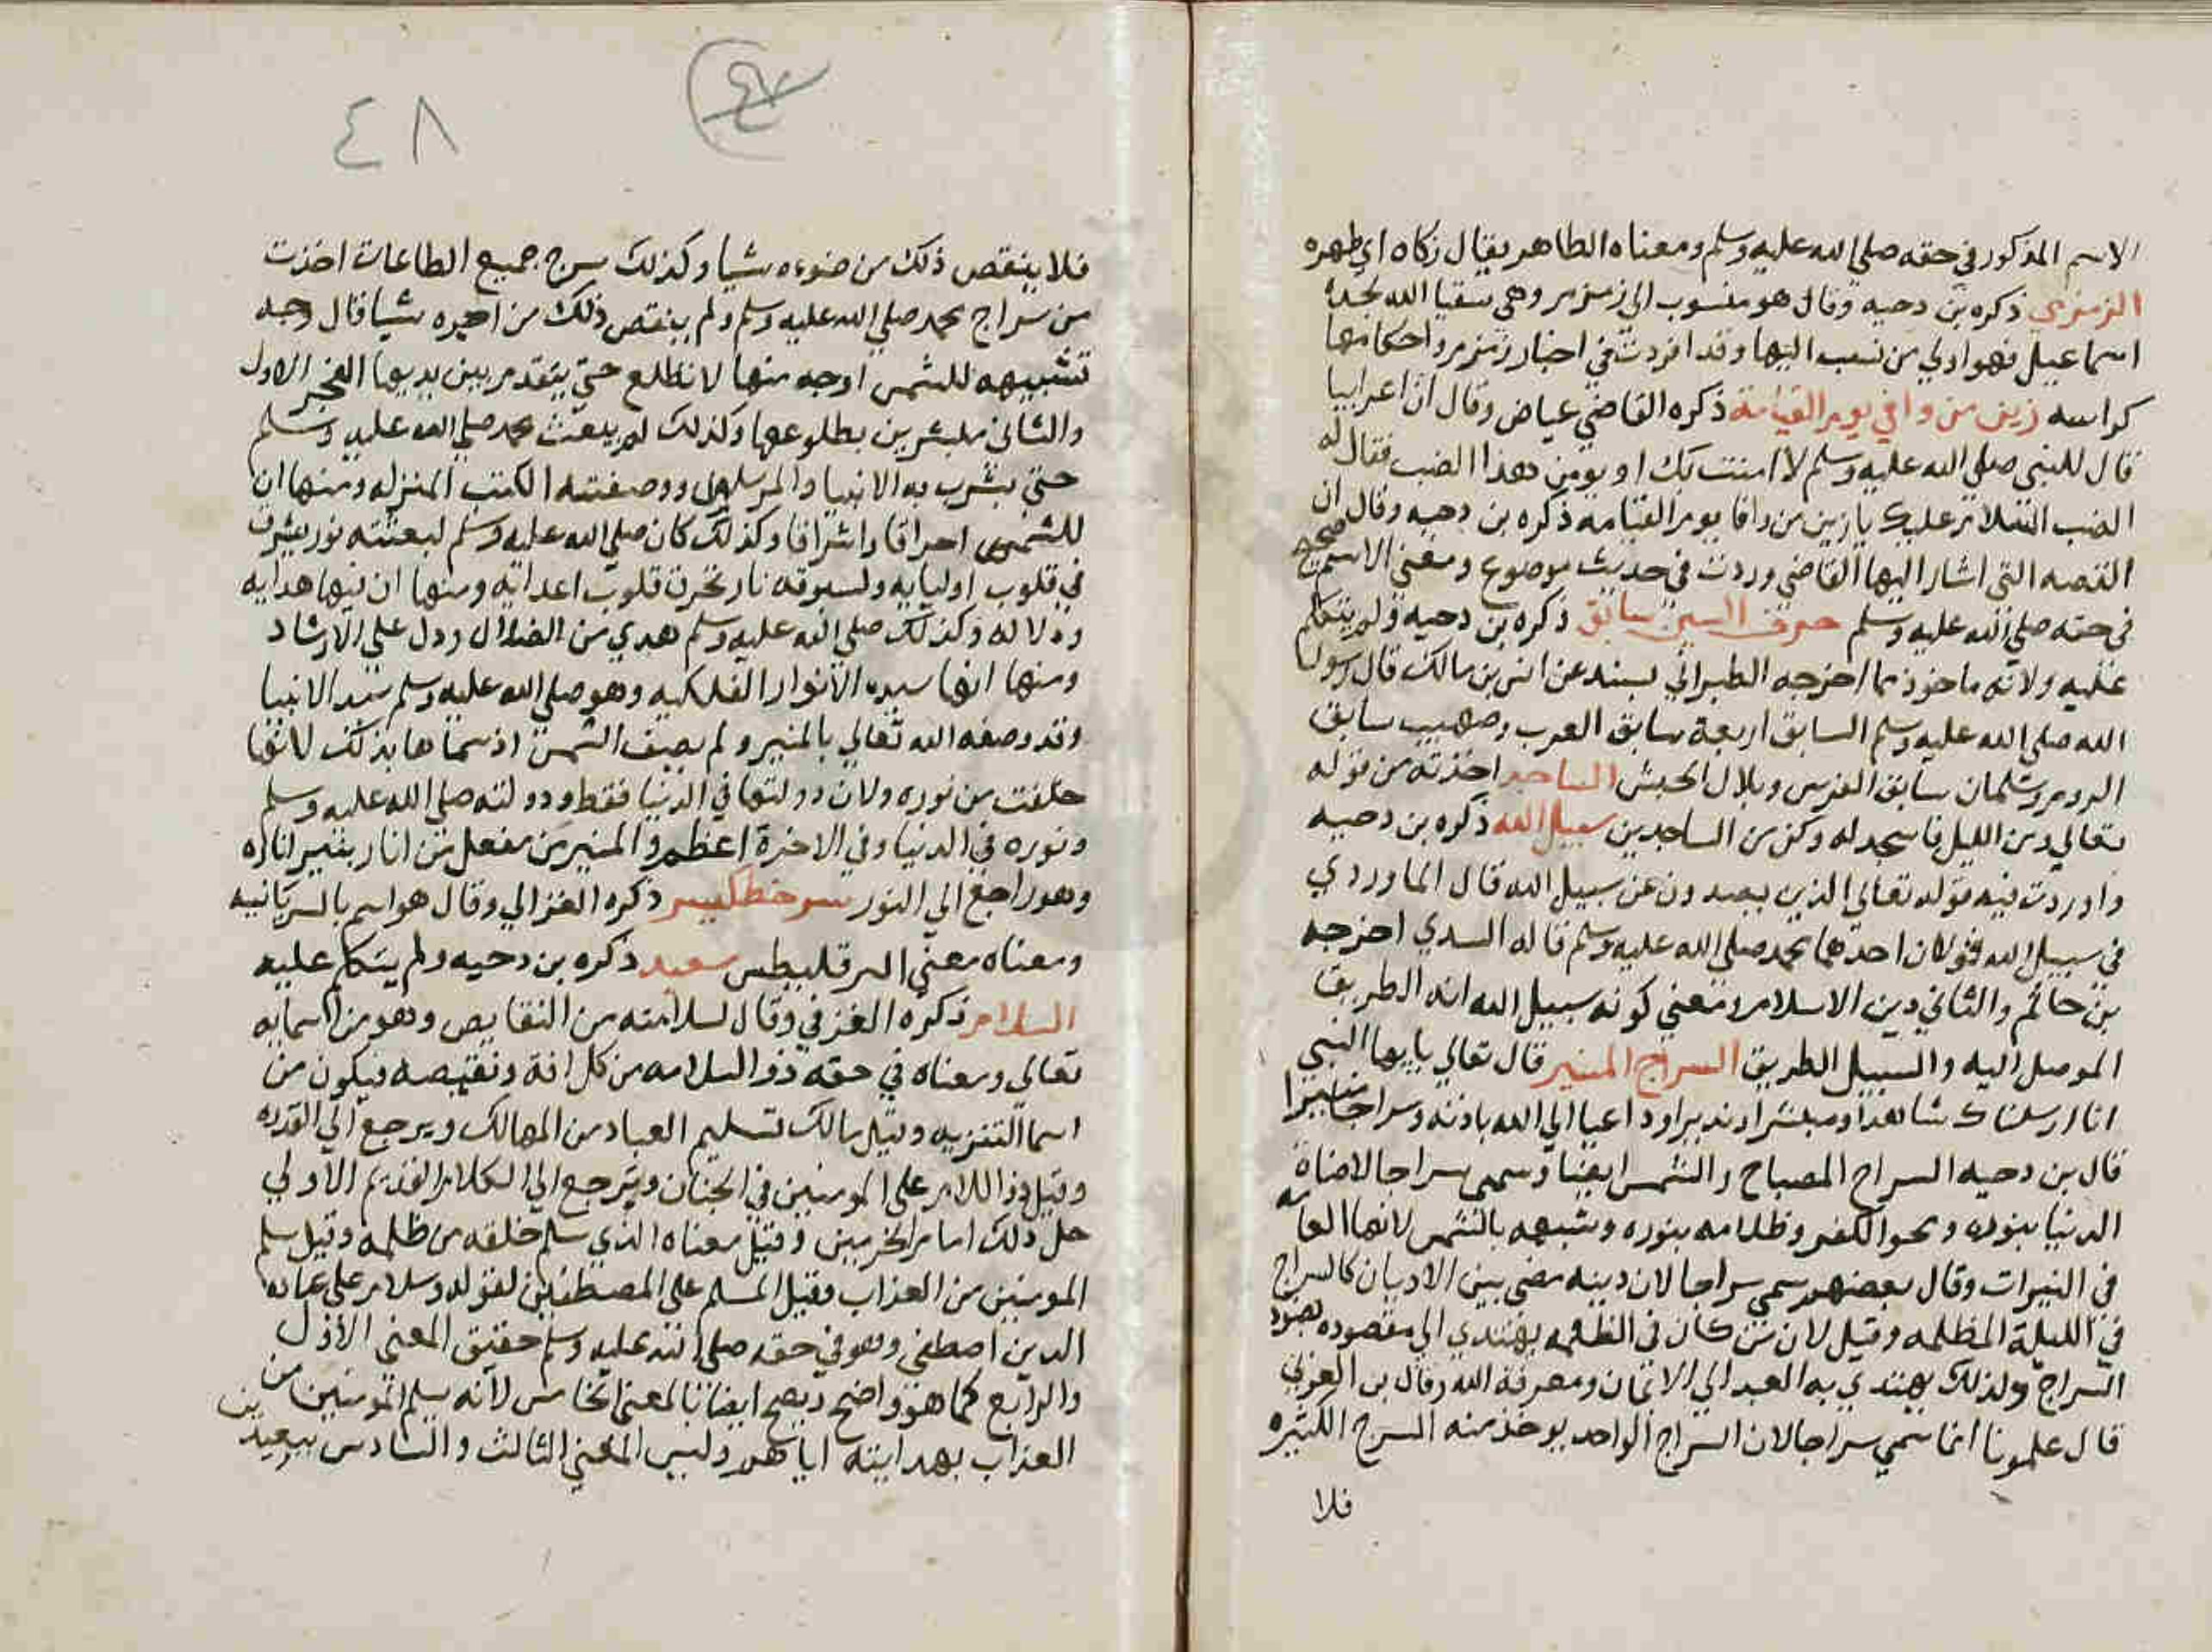 الاسم المذكور في حقه صلي الله عليه وسلم ومعناه الطاهر يقال زكاه اي طهره
الزمزمي ذكره بن دحيه وقال هو منسوب الى زمزم وهي سقيا الله لجده
اسماعيل فهو اولي من نسب اليها وقد افردت في اخبار زمزم واحكامها
كراسه زين من وافي يوم القيامة ذكره القاضي عياض وقال ان اعرابيا
قال للنبي صلي الله عليه وسلم لا امنت بك او يومن هذا الضب فقال له
الضب السلام عليك يا زين من وافا يوم القيامه ذكره بن دحيه وقال ان
القصه التي اشار اليها القاضي وردت في حديث موضوع ومعني الاسم صحيح
في حقه صلي الله عليه وسلم حرف السين سابق ذكره بن دحيه ولم يتكلم
عليه ولانه ماخوذ مما اخرجه الطبراني بسند عن انس بن مالك قال رسول
الله صلي الله عليه وسلم السابق اربعة سابق العرب وصهيب سابق
الروم وسلمان سابق الفرس وبلال الحبش الساجد اخذته من قوله
تعالي ومن الليل فاسجد له وكن من الساجدين سبيل الله ذكره بن دحيه
واوردت فيه قوله تعالي الذين يصدون عن سبيل الله قال الماوردي
في سبيل الله قولان احدهما محمد صلي الله عليه وسلم قاله السدي اخرجه
بن حاتم والثاني دين الاسلام ومعني كونه سبيل الله انه الطريق
الموصل اليه والسبيل الطريق السراج المنير قال تعالي يايها النبي
انا ارسلناك شاهدا ومبشرا ونديرا وداعيا الي الله باذنه وسراجا منيرا
قال بن دحيه السراج المصباح والشمس ايضا وسمي سراجا لاضاة
الدنيا بنوره ومحو الكفر وظلامه بنوره وشبهه بالشمس لانها الغايه
في النيرات وقال بعضهم سمي سراجا لان دينه مضي بين الاديان كالسراج
في الليلة المظلمه وقيل لان من كان في الظلمه يهتدي الي مقصوده بضوء
السراج ولذلك يهتدي به العبد الي الايمان ومعرفة الله وقال بن العربي
قال علمونا انما سمي سراجا لان السراج الواحد يوخذ منه السرج الكثيره
فلا
٤٧
٤٨
فلا ينقص ذلك من ضوءه شيا وكذلك سرج جميع الطاعات اخذت
من سراج محمد صلي الله عليه وسلم ولم ينقص ذلك من اجره شيا قال وجه
تشبيهه للشمس اوجه منها لا تطلع حتي يتقدم بين يديها الفجر الاول
والثاني مبشرين بطلوعها وكذلك لم يبعث محمد صلي الله عليه وسلم
حتي بشرت به الانبيا والمرسلون ووصفته الكتب المنزله ومنها ان
للشمس احراقا واشراقا وكذلك كان صلي الله عليه وسلم لبعثته نور يشرق
في قلوب اوليايه ولسيوفه نار تحرق قلوب اعدائه ومنها ان فيها هدايه
ودلاله وكذلك صلي الله عليه وسلم هدي من الضلال ودل علي الارشاد
ومنها انها سيده الانوار الفلكيه وهو صلي الله عليه وسلم سيد الانبيا
وقد وصفه الله تعالي بالمنير ولم يصف الشمس اذ سماها بذلك لانها
خلقت من نوره ولان دولتها في الدنيا فقط ودولته صلي الله عليه وسلم
ونوره في الدنيا وفي الاخرة اعظم والمنير من مفعل من انار ينير اناره
وهو راجع الي النور سرخطليس ذكره الغزالي وقال هو اسم بالسريانيه
ومعناه معني البرقليطس سعيد ذكره بن دحيه ولم يتكلم عليه
السلام ذكره العزفي وقال لسلامته من النقايص وهو من اسمايه
تعالي ومعناه في حقه ذو السلامه من كل افة ونقيصه فيكون من
اسما التنزيه وقيل مالك تسليم العباد من المهالك ويرجع الي القدره
وقيل ذو السلام علي المومنين في الجنان ويرجع الي الكلام القديم الاولي
حل ذلك امام الحرمين وقيل معناه الذي سلم خلقه من ظلمه وقيل سلم
المومنين من العذاب وقيل المسلم علي المصطفين لقوله وسلام على عباده
الدين اصطفي وهو في حقه صلي الله عليه وسلم حقيق المعني الاول
والرابع كما هو واضح ويصح ايضا بالمعني الخامس لانه سلم المومنين من
العذاب بهدايته اياهم وليس المعني الثالث والسادس ببعيدين